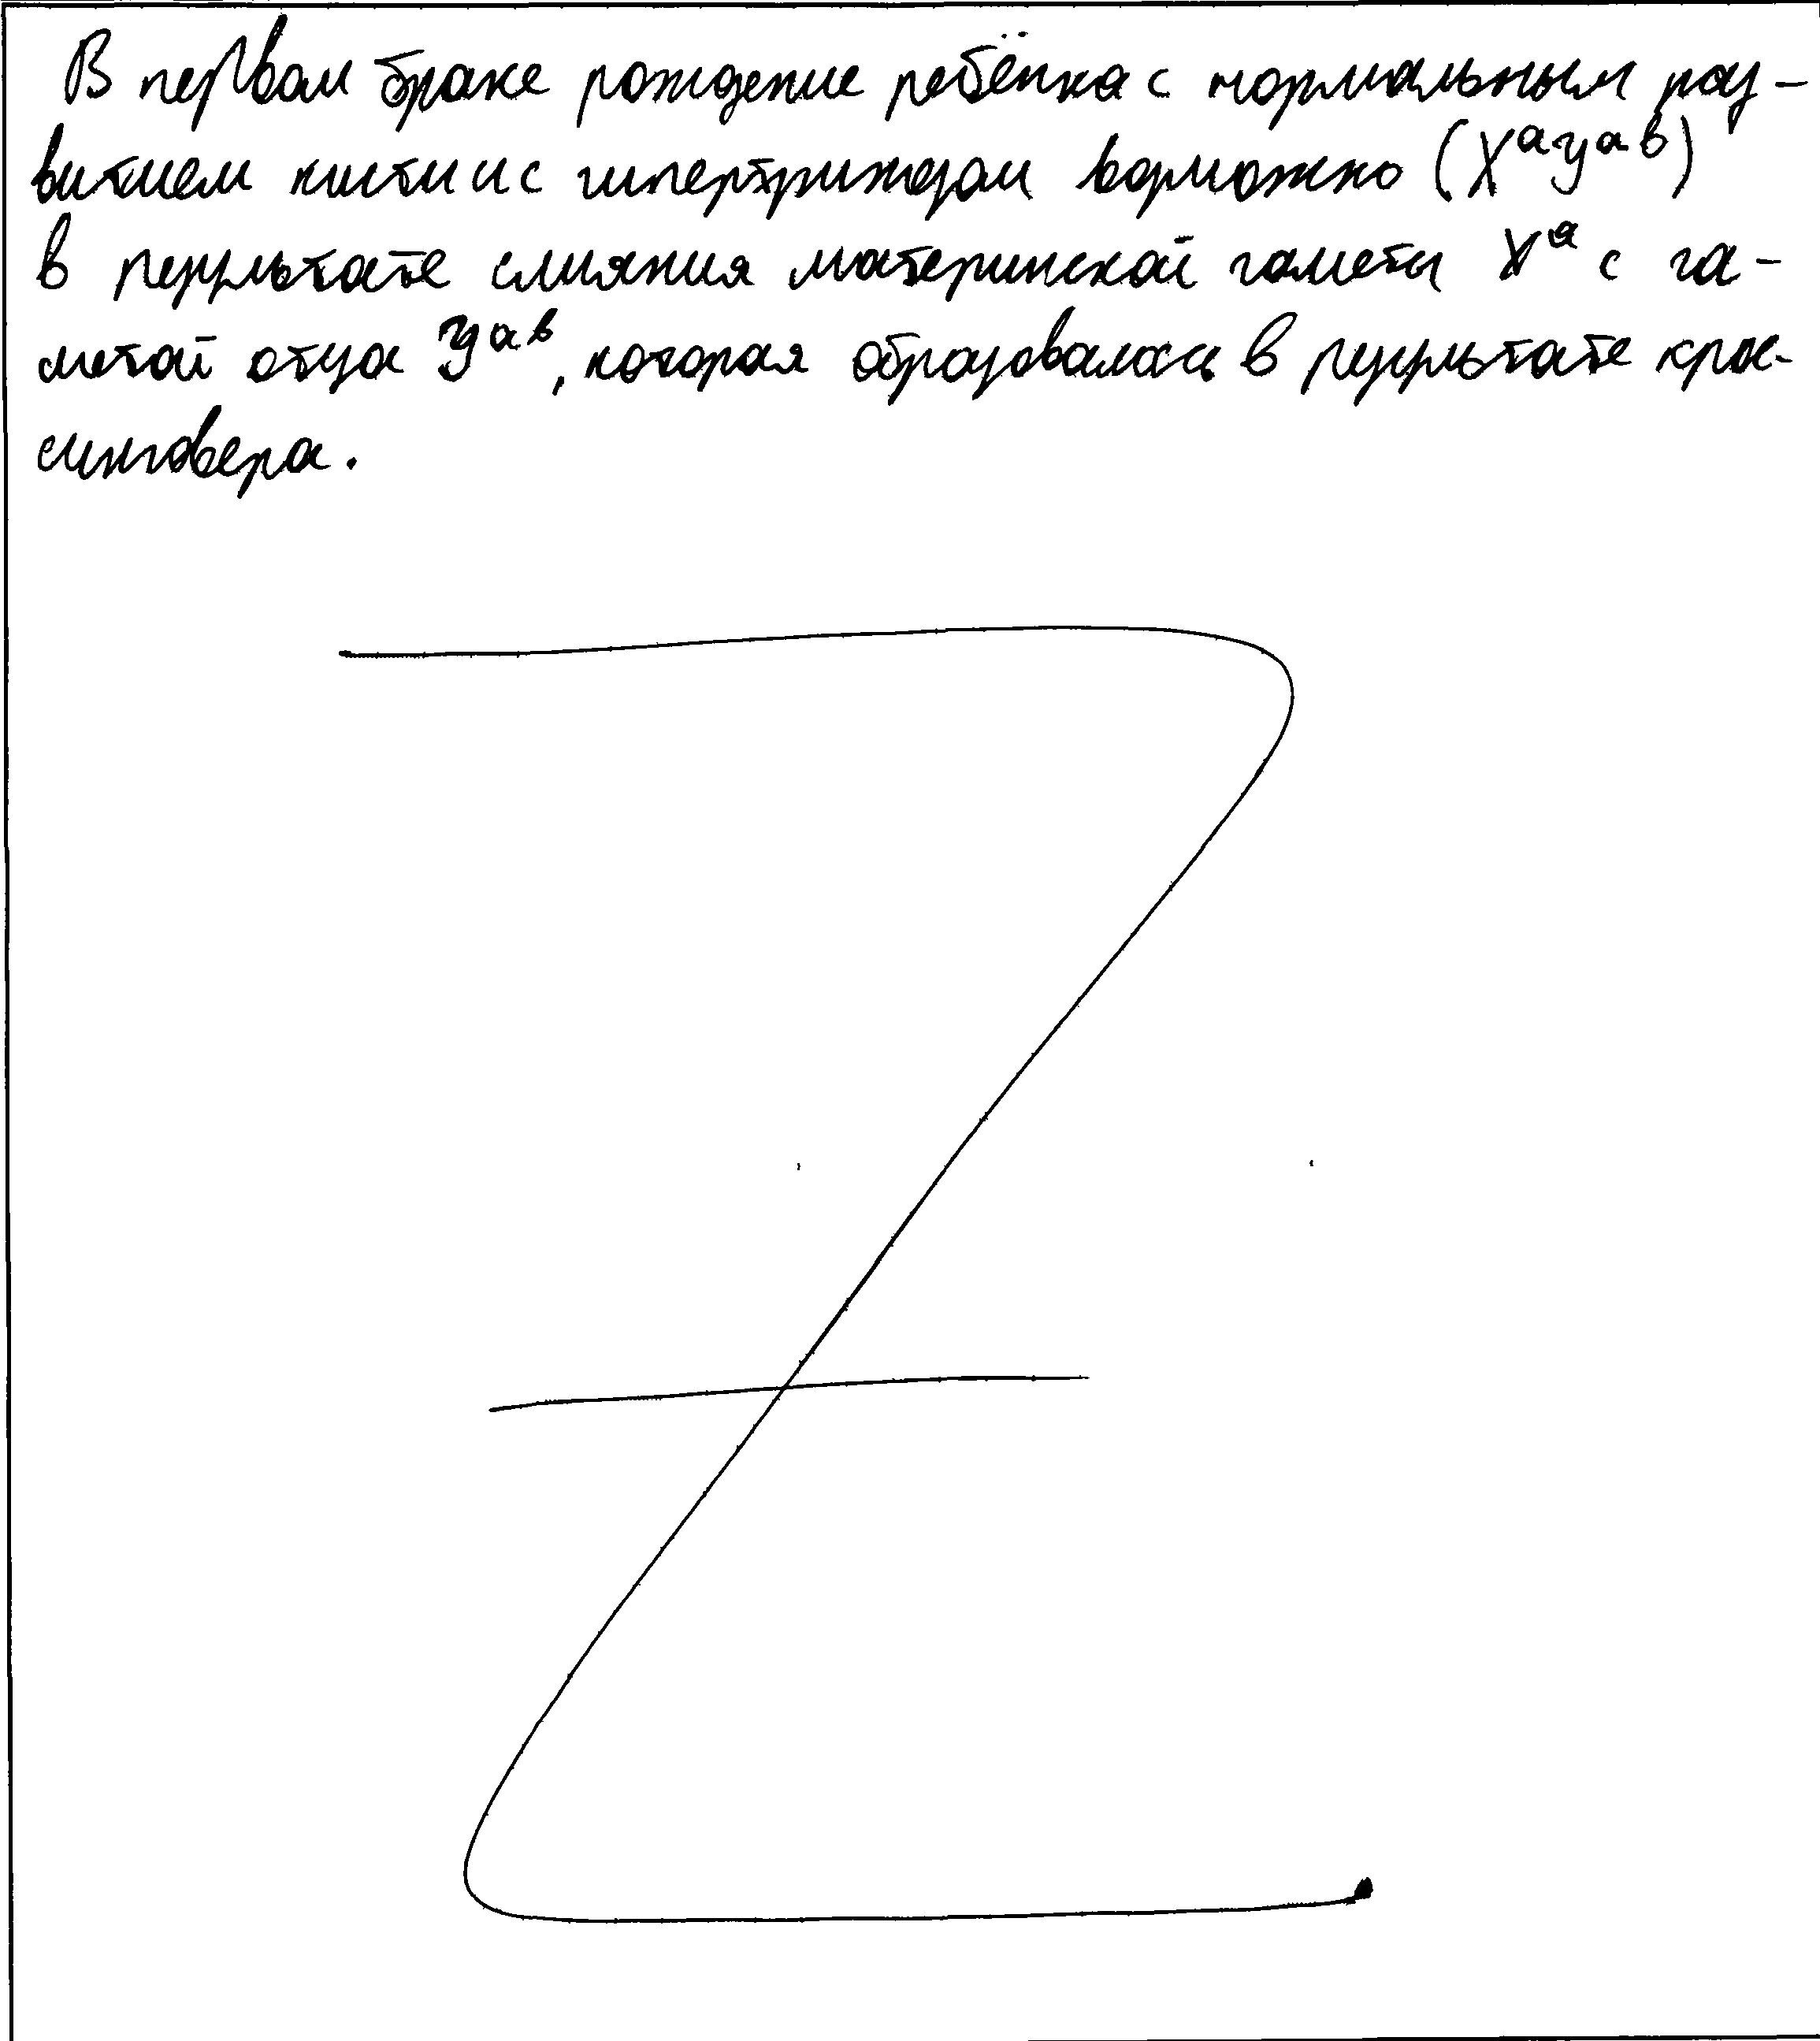 В первом браке рождение ребёнка с нормальным раз-
витием кисти и с гипертрихозом возможно (Xᵃyᵃᵇ)
в результате слияния материнской гаметы Xᵃ с га-
метой отца Yᵃᵇ, которая образовалась в результате крос-
синговера.